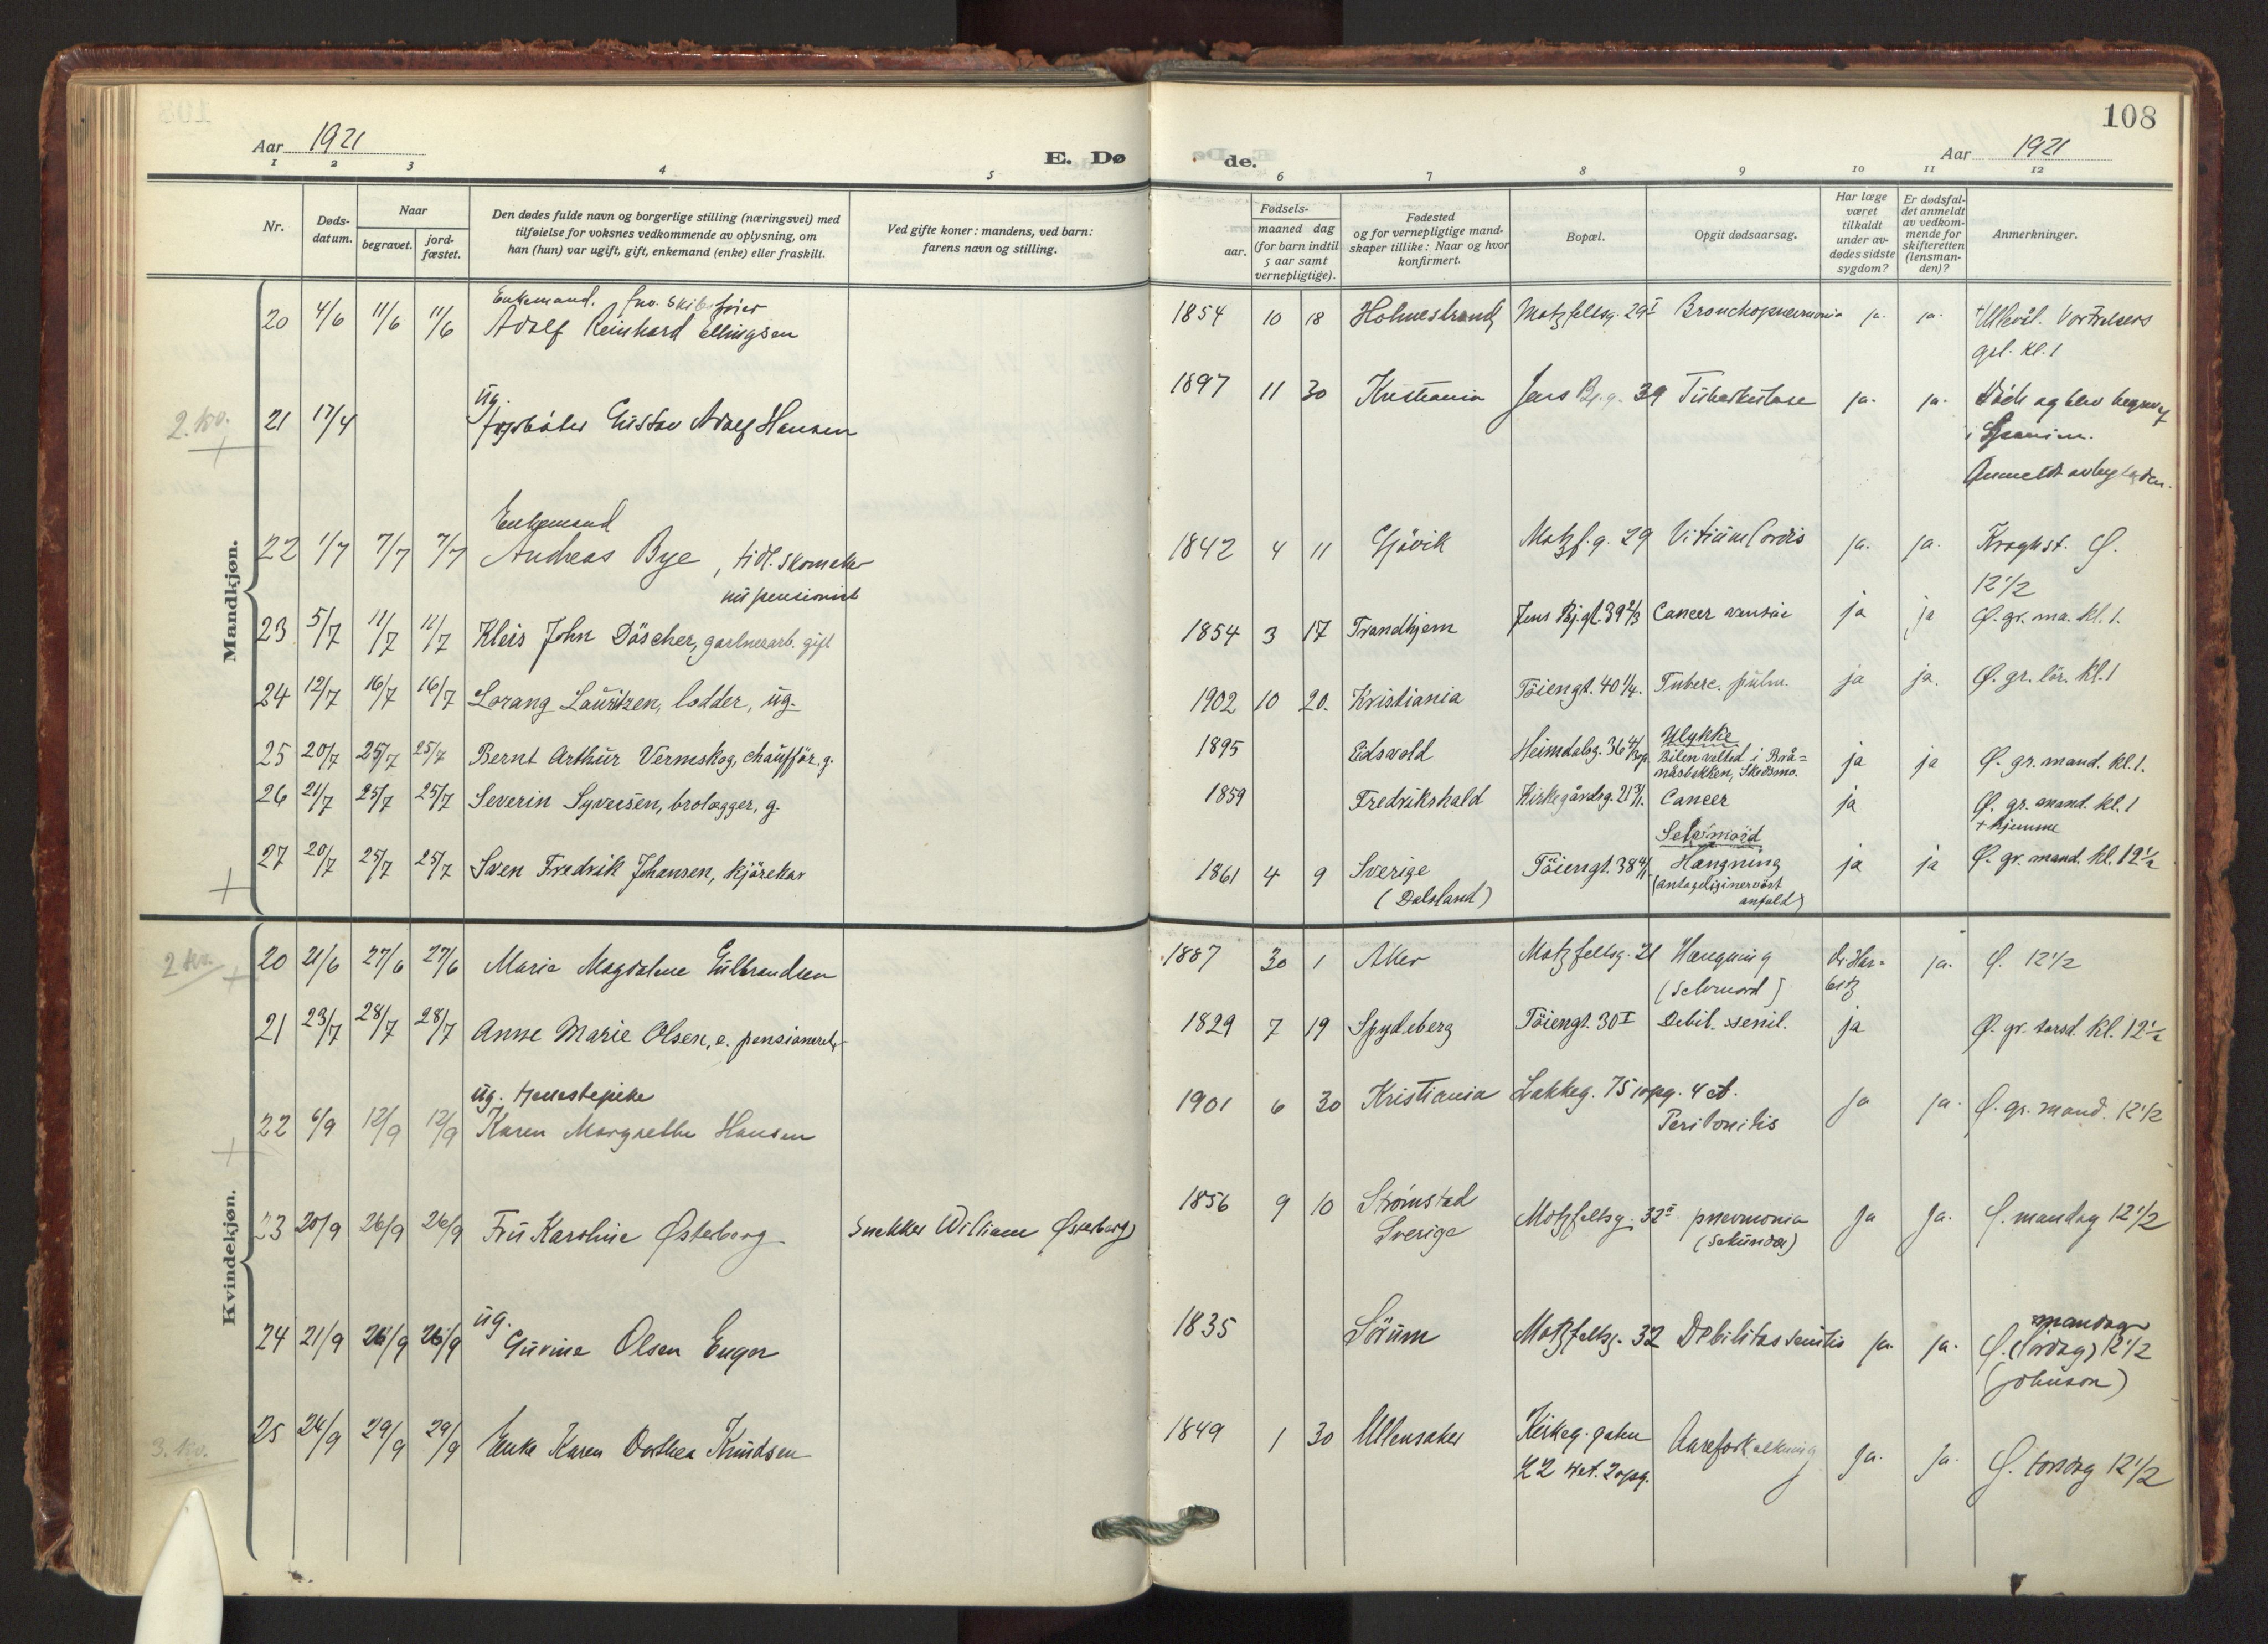 108
Aar 1921
E. Dø
de.
Aar 1921
1 2 3 4 5 6 7 8 9 10 11 12
Nr.
Døds-
datum.
Naar
begravet.
jord-
fæstet.
Den dødes fulde navn og borgerlige stilling (næringsvei) med
tilføielse for voksnes vedkommende av oplysning, om
han (hun) var ugift, gift, enkemand (enke) eller fraskilt.
Ved gifte koner: mandens, ved barn:
farens navn og stilling.
aar.
Fødsels-
maaned dag
(for barn indtil
5 aar samt
vernepligtige).
Fødested
og for vernepligtige mand-
skaper tillike: Naar og hvor
konfirmert.
Bopæl.
Opgit dødsaarsag.
Har læge
været
tilkaldt
under av-
dødes sidste
sygdom?
Er dødsfal-
det anmeldt
av vedkom-
mende for
skifteretten
(lensman-
den)?
Anmerkninger.
Mandkjøn.
Enkemand. fhv. Skibsfører
20 4/6 11/6 11/6 Adolf Reinhard Ellingsen 1854 10 18 Holmestrand Motzfeltsg. 29 I Bronchopneumonia ja. ja. Ullevål. Vor Frelsers
grl. kl. 1
2. kv.
ug.
21 17/4 Fyrbøter Gustav Adolf Hansen 1897 11 30 Kristiania Jens Bj. g. 39 Tuberkulose ja. ja. Døde og blev begravet
i Spanien.
Anmeldt av
Enkemand
22 1/7 7/7 7/7 Andreas Bye, tidl. skomaker 1842 4 11 Gjøvik Motzf. g. 29 Vitium Cordis ja. ja. Kroghst. Ø.
nu pensionist
12 1/2
23 5/7 11/7 11/7 Kleis John Döscher, gartnerarb. gift 1854 3 17 Trondhjem Jens Bj. gt. 39 Cancer ja ja Ø. gr. ma. kl. 1.
24 12/7 16/7 16/7 Lorang Lauritzen, lodder, ug. 1902 10 20. Kristiania Töiengt. 40 1/4. Tuberc. pulm. ja ja. Ø. gr. lör. kl. 1
25 20/7 25/7 25/7 Bernt Arthur Vermskog, chaufför, g. 1895 Eidsvold Heimdalsg. 36 Ulykke
Bilen veltet i Brå=
nåsbakken, Skedsmo. ja ja Ø. gr. mand. kl. 1.
26 21/7 25/7 25/7 Severin Syversen, brolægger, g. 1859 Fredrikshald Kirkegårdsg. 21 Cancer ja Ø. gr. mand. kl. 1
+ hjemme
27 20/7 25/7 25/7 Sven Fredrik Johansen, kjörekar 1861 4 9 Sverige Töiengt. 38 Selvmord
Hængning ja ja Ø. gr. mand. kl. 12 1/2
(Dalsland) (antagelig i nervöst
anfald)
Kvindekjøn.
2 kv.
20 21/6 27/6 27/6 Marie Magdalene Gulbrandsen 1887 30 1 Aker Motzfeltsg. 21 Hængning dr. Har= ja. Ø. 12 1/2
(Selvmord) bitz
21 23/7 28/7 28/7 Anne Marie Olsen, e. 1829 7 19 Spydeberg Töiengt. 30 I Debil. senil. ja Ø. gr. torsd. kl. 12 1/2
ug.
22 6/9 12/9 12/9 Karen Margrethe Hansen 1901 6 30 Kristiania Lakkeg. 75 opg. 4 et. ja ja. Ø. gr. mand. 12 1/2
Peritonitis
23 20/9 26/9 26/9 Fru Karoline Østerberg. Snekker Wiliam Østerberg 1856 9 10 Strömstad
Sverige Motzfeltsg. 32 II pneumonia ja ja. Ø. mandag 12 1/2
(Sekundær)
ug. mandag
24 21/9 26/9 26/9 Gurine Olsen Enger 1835 Sörum Motzfeltsg. 32 Debilitas senilis ja. ja. Ø. (lördag) 12 1/2
(Johnson)
3. kv.
25 24/9 29/9 29/9 Enke Karen Dorthea Knudsen 1849 1 30 Ullensaker Kirkeg. gaten Aareforkalkning ja. ja. Ø. torsdag 12 1/2
22 4 et. 2 opg.